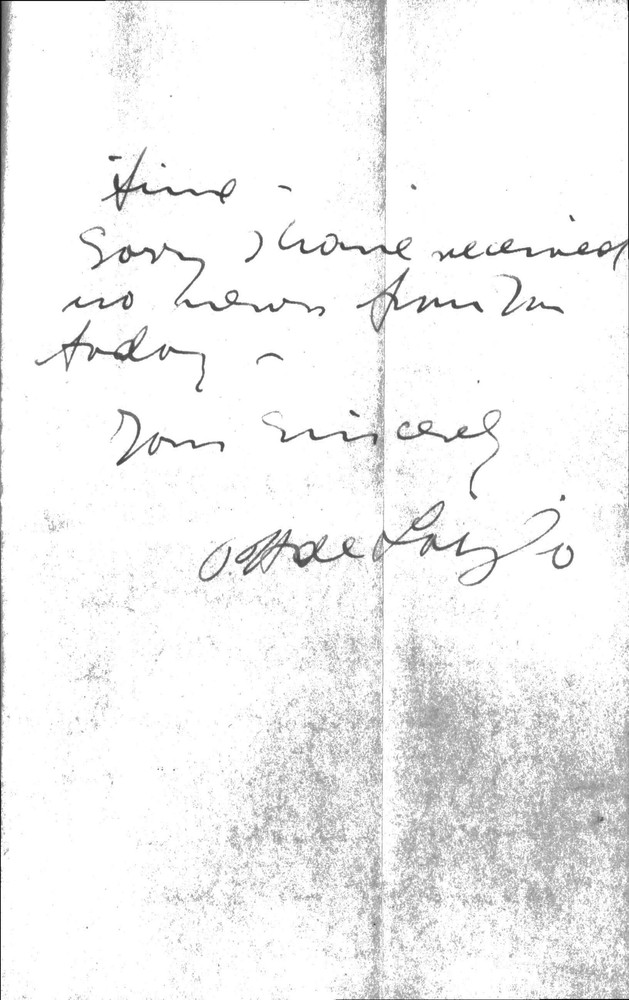 time -
Sorry I have received
no news from You
today -
Yours Sincerely
de László